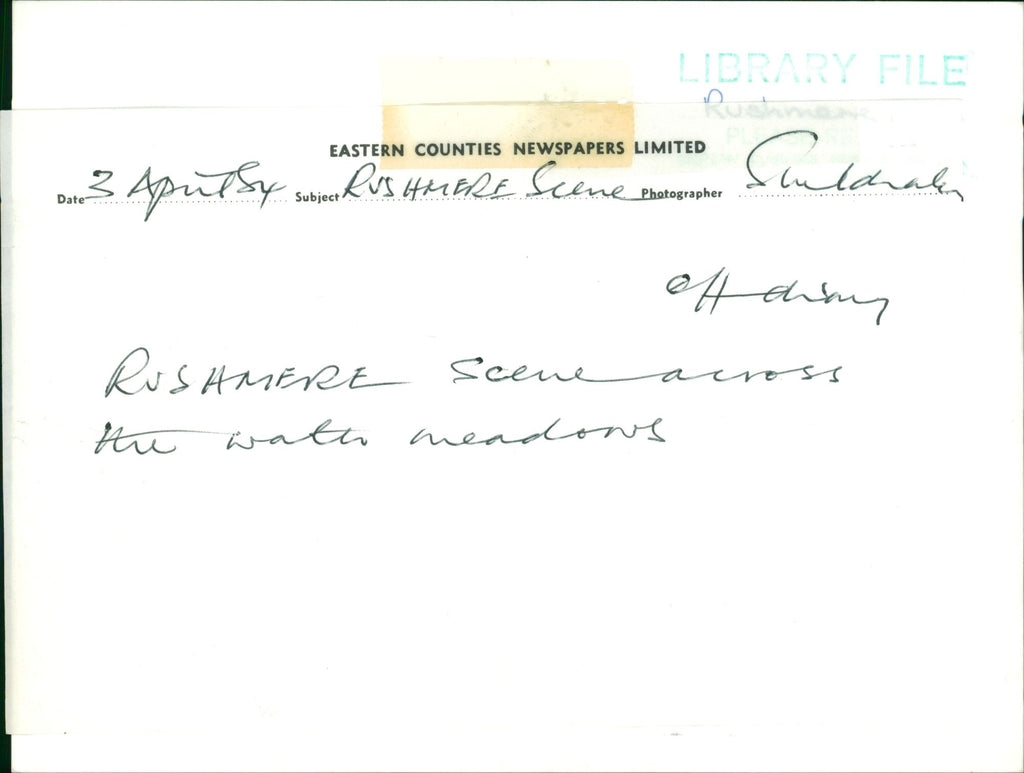 LIBRARY FILE
Rushmere
EASTERN COUNTIES NEWSPAPERS LIMITED
Date 3 April 84 Subject RUSHMERE Scene Photographer
off diary
RUSHMERE Scene across
the water meadows